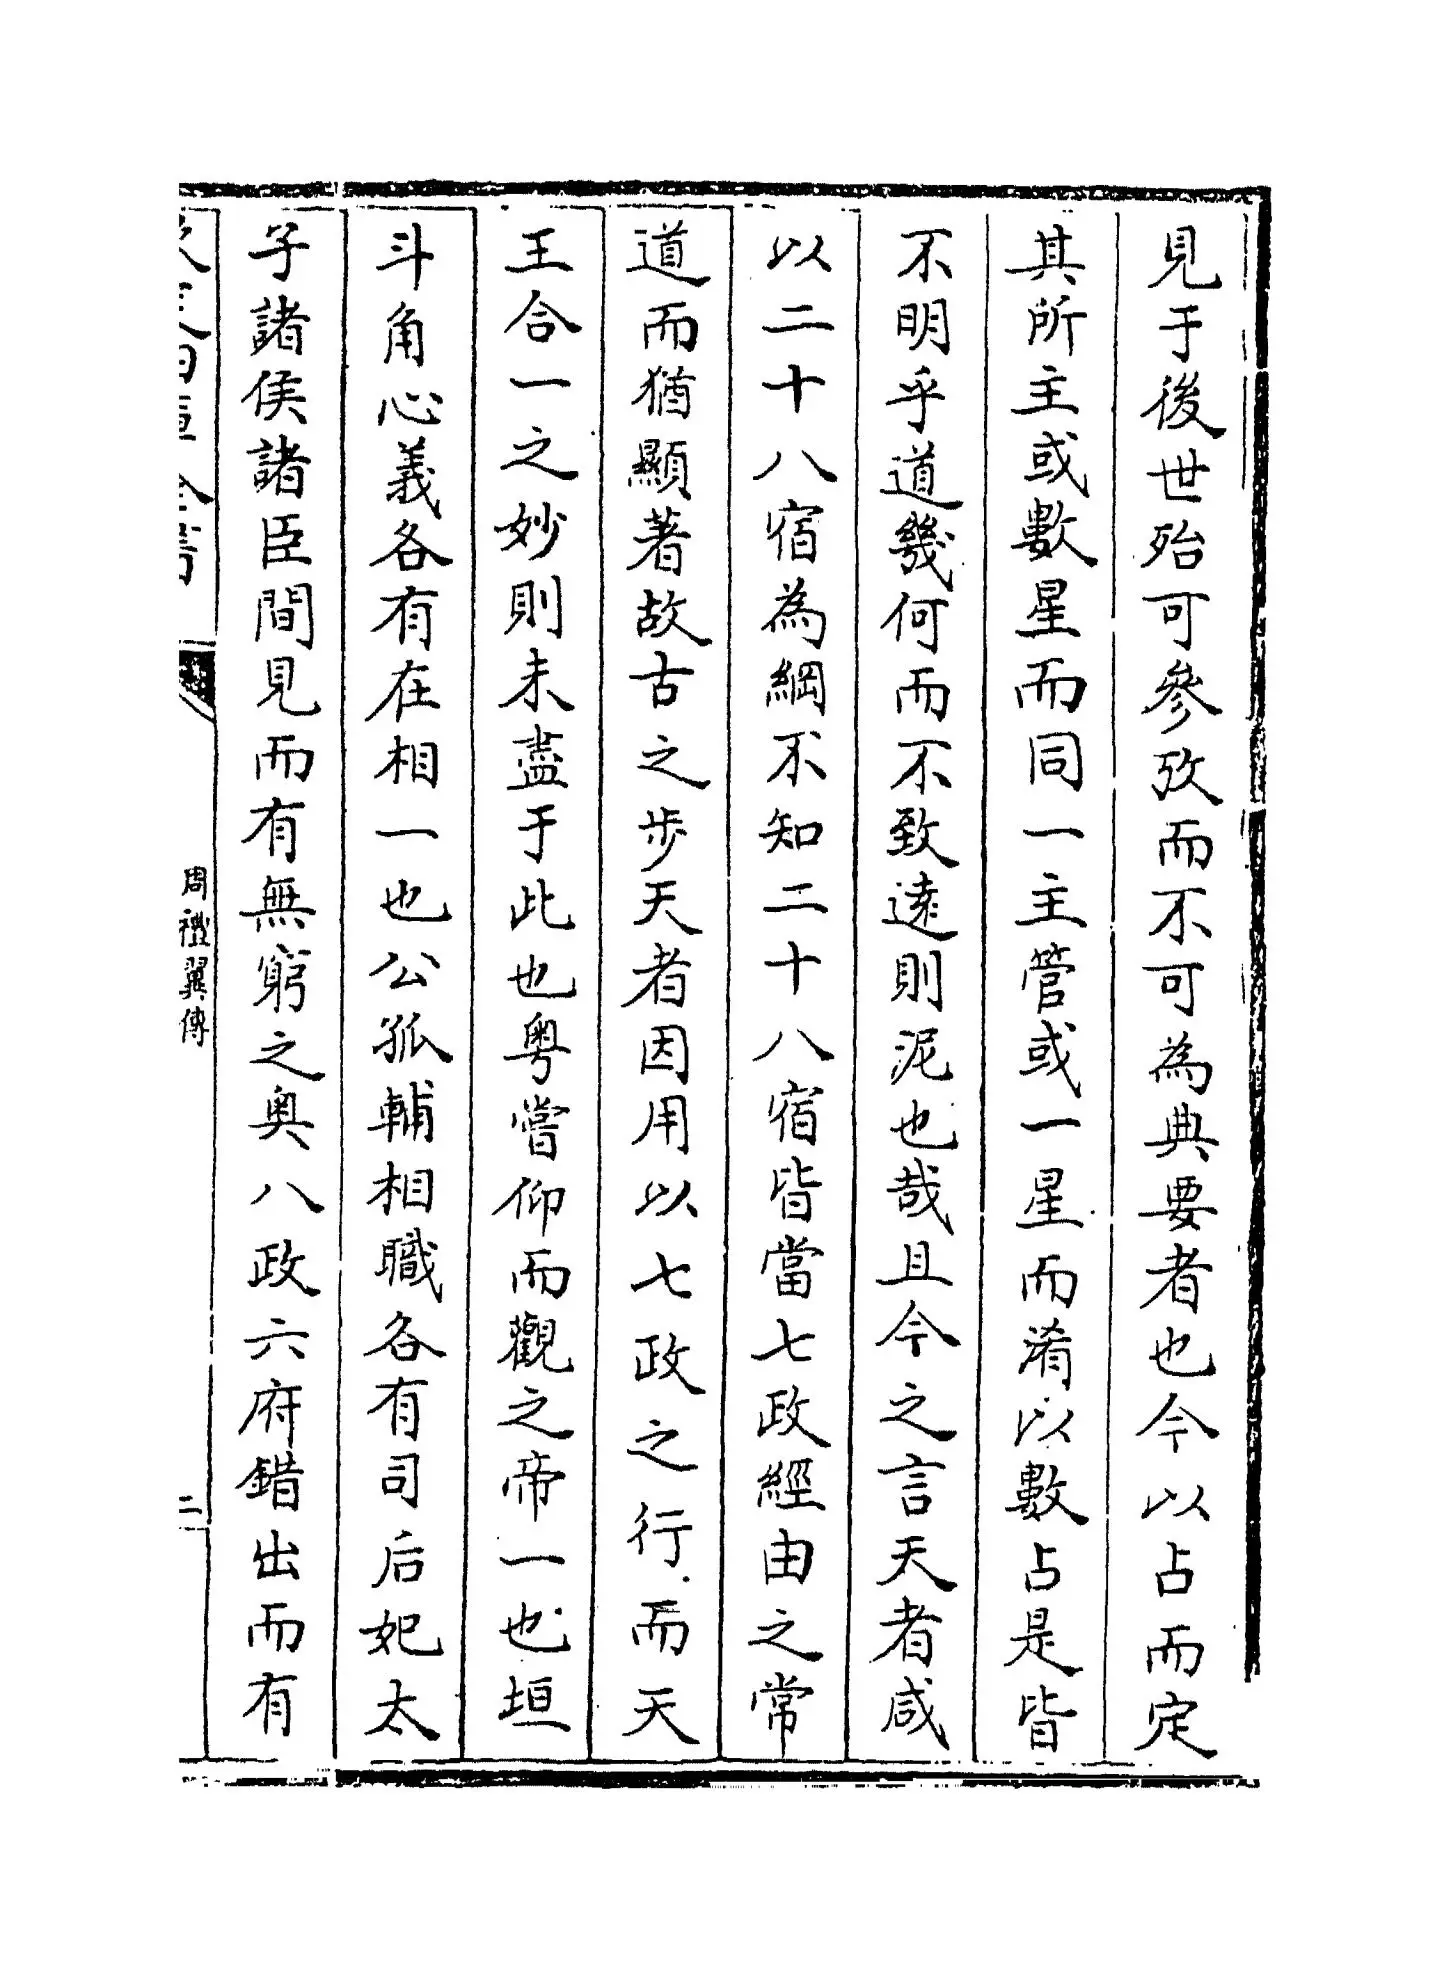 見于後世殆可參攷而不可為典要者也今以占而定
其所主或數星而同一主管或一星而淆以數占是皆
不明乎道幾何而不致遠則泥也哉且今之言天者咸
以二十八宿為綱不知二十八宿皆當七政經由之常
道而猶顯著故古之步天者因用以七政之行而天
王合一之妙則未盡于此也粵嘗仰而觀之帝一也垣
斗角心義各有在相一也公孤輔相職各有司后妃太
子諸侯諸臣間見而有無窮之奥八政六府錯出而有
周禮翼傳
二